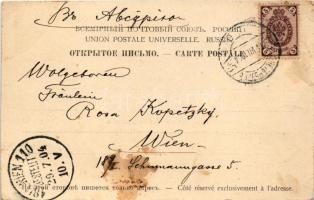 Въ Австрію
ВСЕМІРНЫЙ ПОЧТОВЫЙ СОЮЗЪ. РОССІЯ
UNION POSTALE UNIVERSELLE. RUSSIE
ОТКРЫТОЕ ПИСЬМО. — CARTE POSTALE
Wolgeboren
Fräulein
Rosa Kopetzky
Wien
Schumanngasse 5.
WIEN 110
На этой сторонѣ пишется только адресъ. — Côté réservé exclusivement à l'adresse.